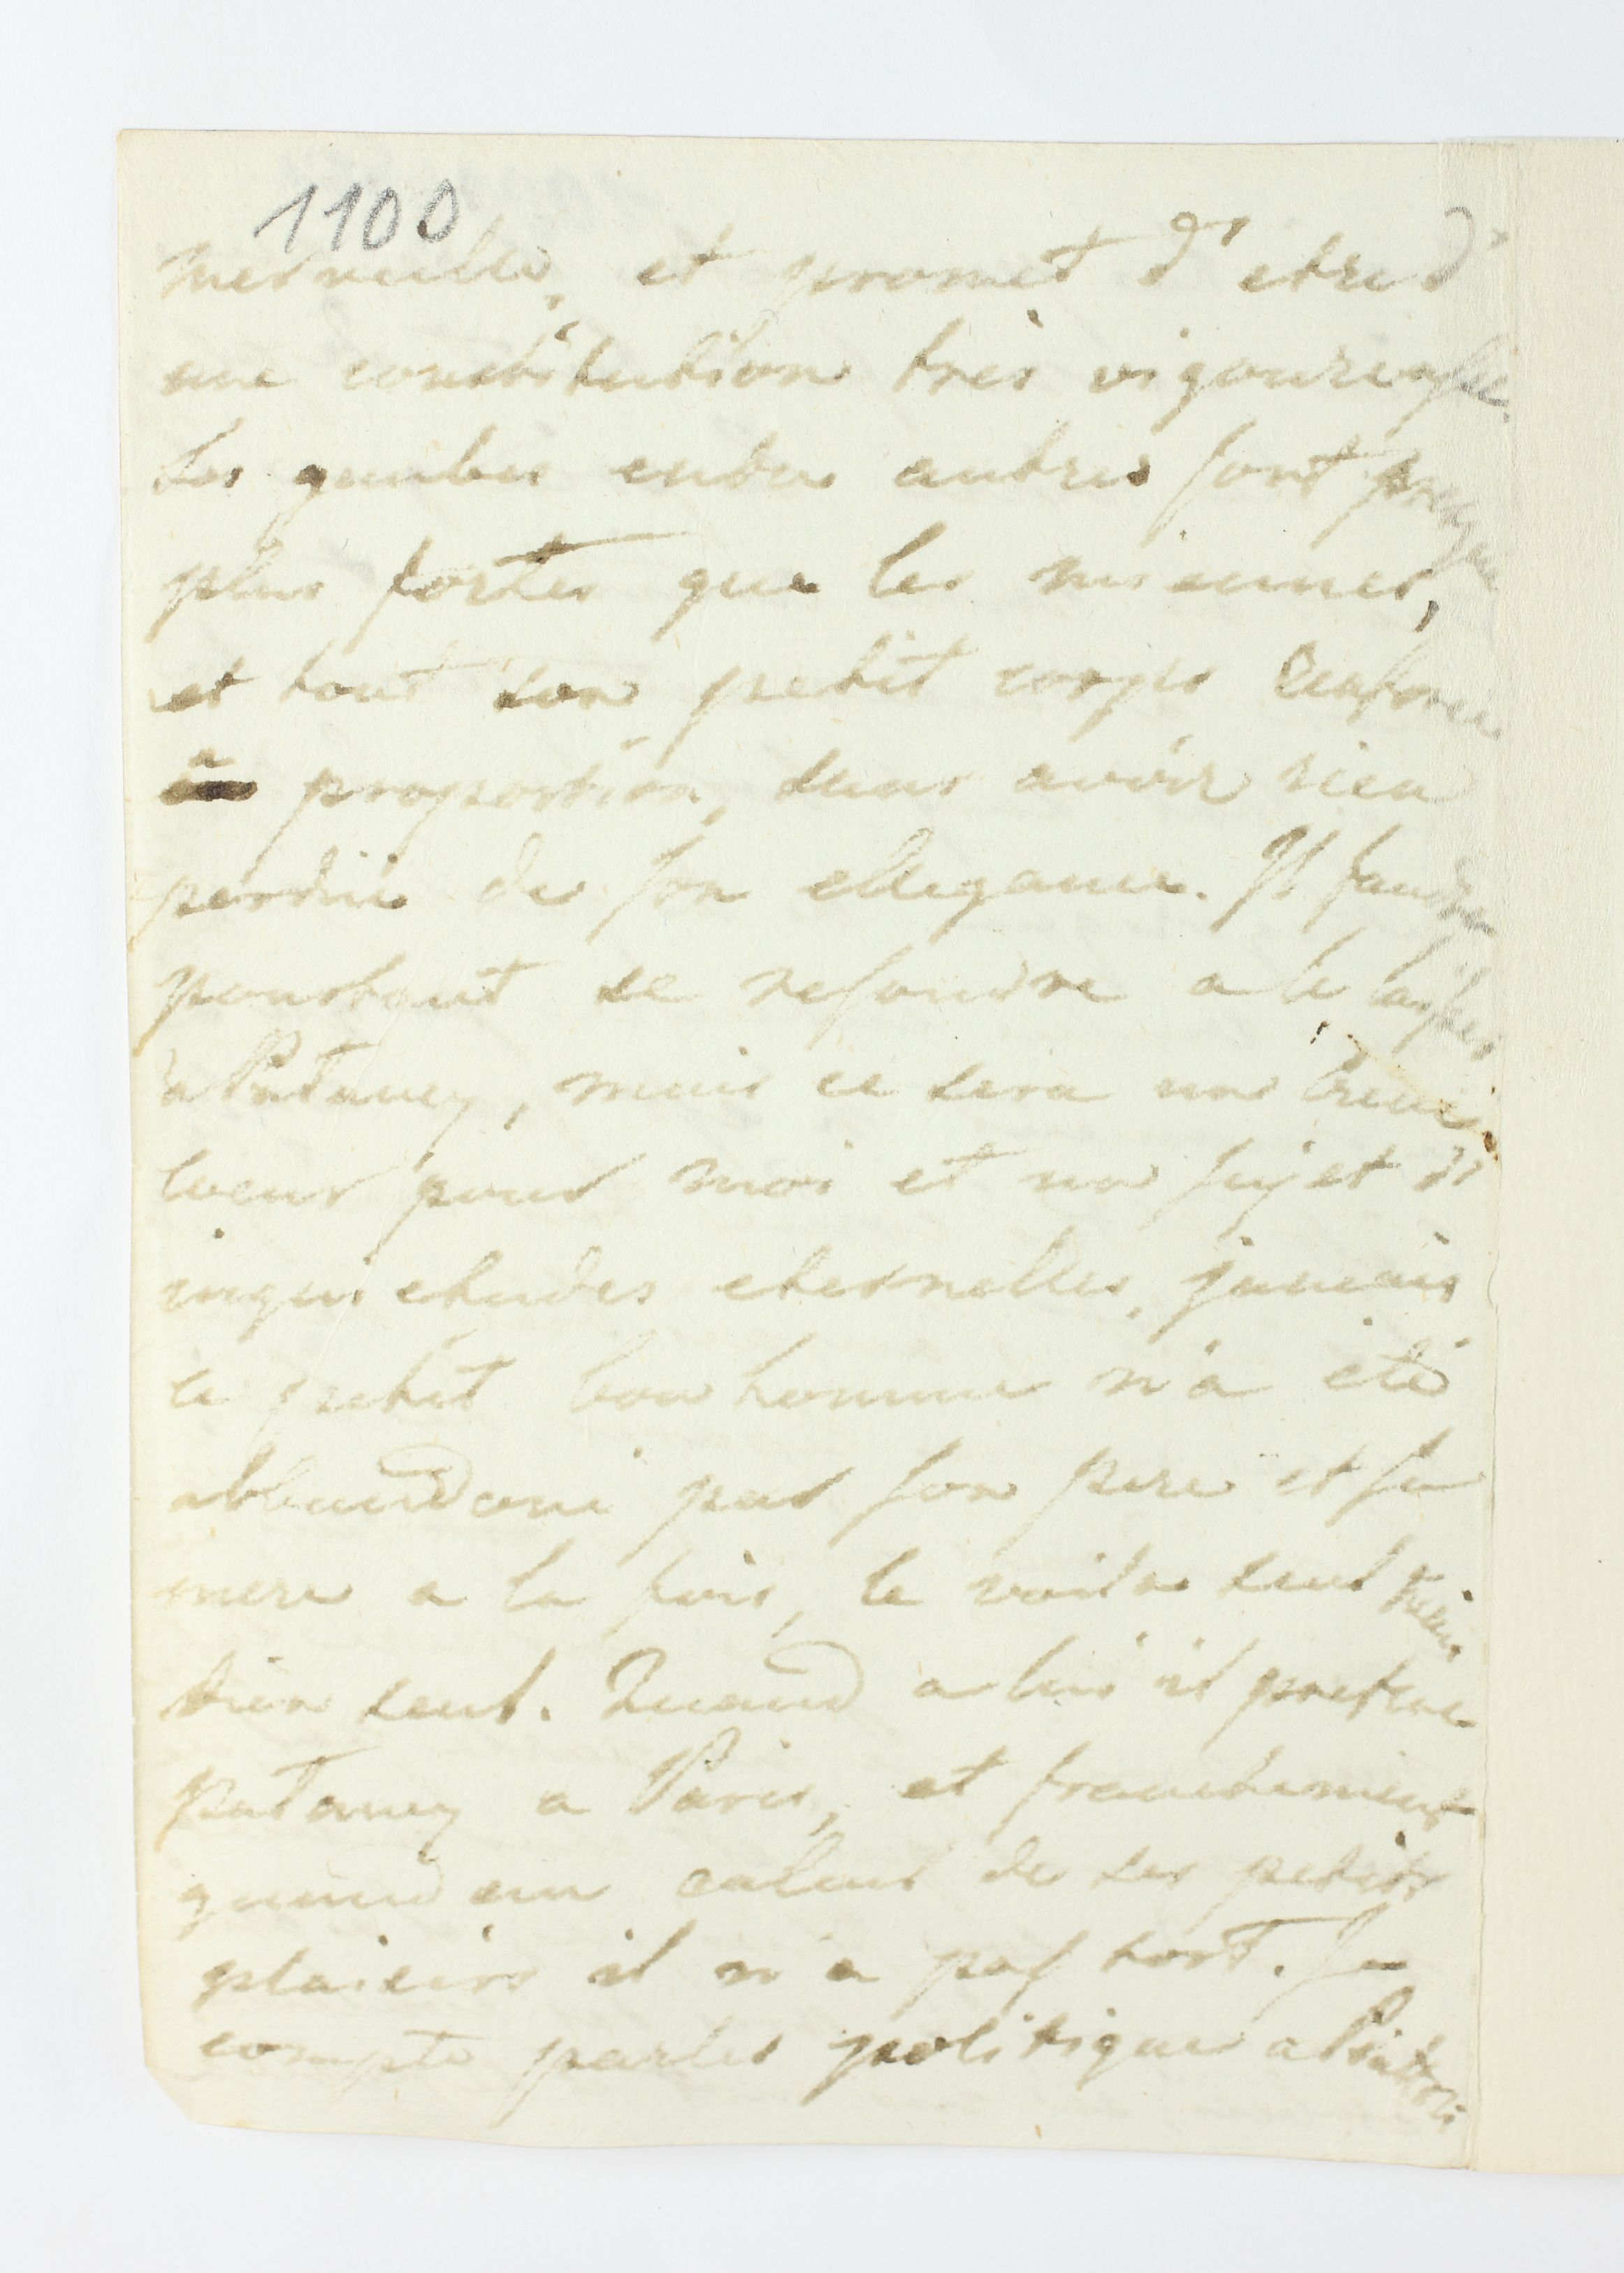 1100
merveille, et promet d'etre d'
une constitution tres vigoureuse.
Ses jambes entre autres sont presque
plus fortes que les miennes,
et tout son petit corps renforcé
a proportion, sans avoir rien
perdue de son ellegance. Il faudra
pourtant se resoudre a le laisser
a Putawy, mais ce sera un creve
coeur pour moi et un sujet d'
inquietudes eternelles, jamais
ce petit bonhomme n'a eté
abbandonné par son pere et sa
mere a la fois, le voila seul
bien seul. Quand a lui il prefere
putawy a Paris, et franchement
quand au calcul de ses petits
plaisirs il n'a pas tort. Je
compte parler politique a